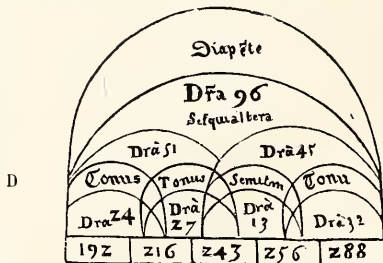 Diapẽte
Dr̃a 96
Sesquialtera
Drã 51 Drã 45
Tonus Tonus Semitm Tonu
Dra z4 Drã z7 Drã 13 Drã 3z
D
19z z16 z43 z56 z88